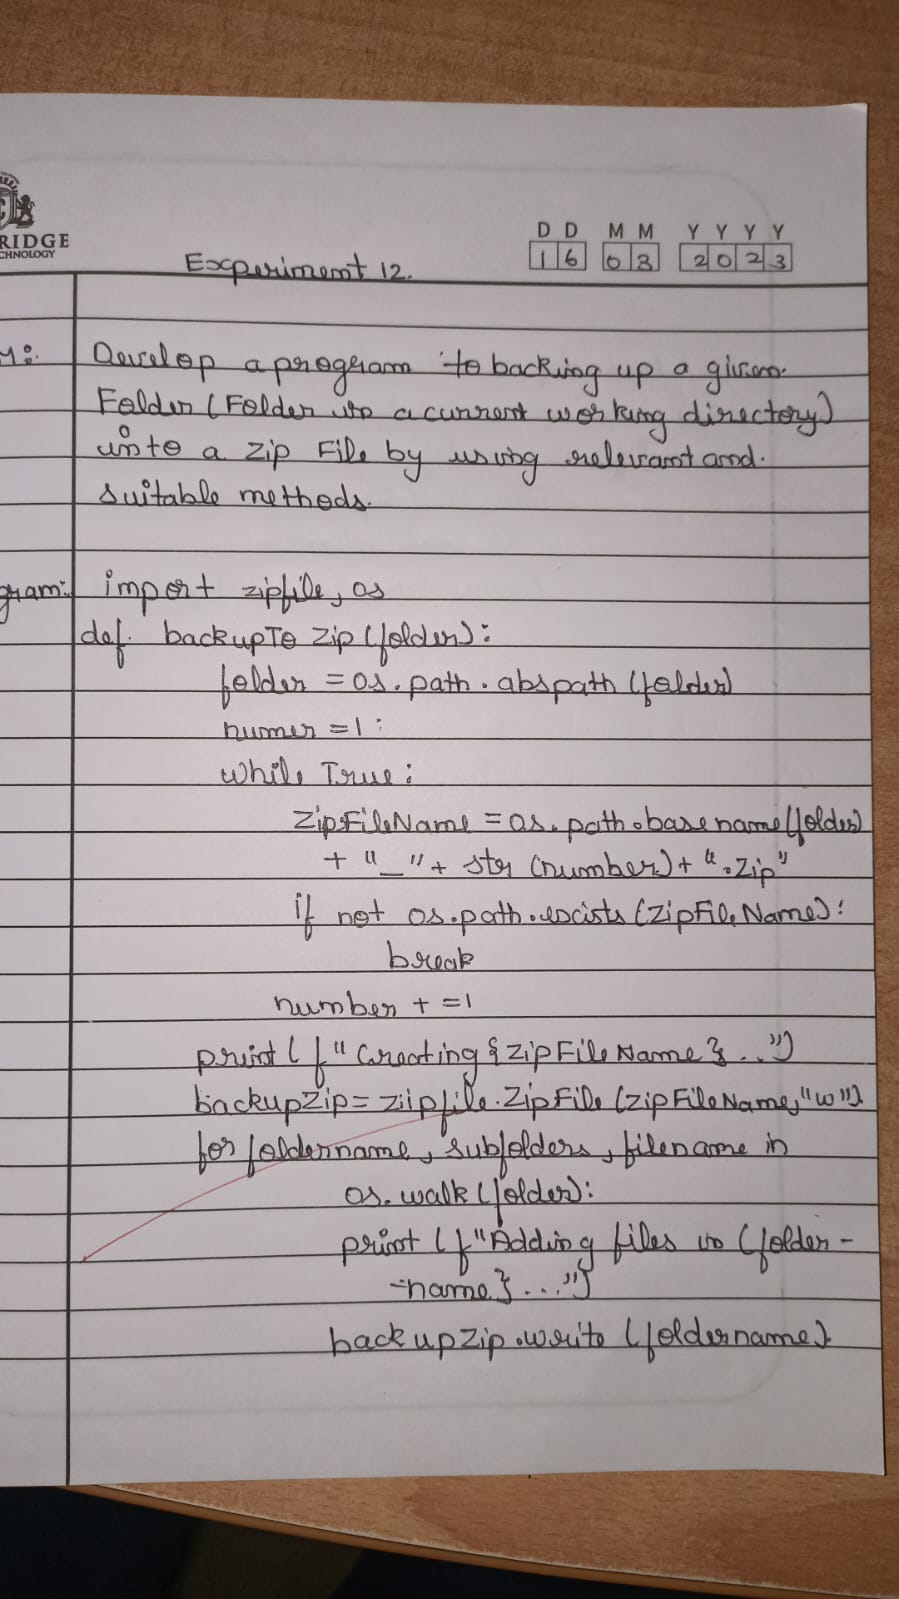 RIDGE
CHNOLOGY
D D M M Y Y Y Y
16 03 2023
Experiment 12.
Develop a program to backing up a given
Folder (Folder in a current working directory)
into a zip File by using relevant and.
suitable methods.
gram: import zipfile, os
def. backupTo Zip (folder):
folder = os.path.abspath (folder)
numer = 1:
while True:
ZipFileName = os.path.basename (folder)
+ "_" + str (number) + ".Zip"
if not os.path.exists (ZipFileName):
break
number + = 1
print (f" Creating {ZipFileName}..")
backupZip = zipfile.ZipFile (ZipFileName, "w")
for foldername, subfolders, filename in
os.walk (folder):
print (f"Adding files in (folder-
-name}...")
backupzip.write (foldername).